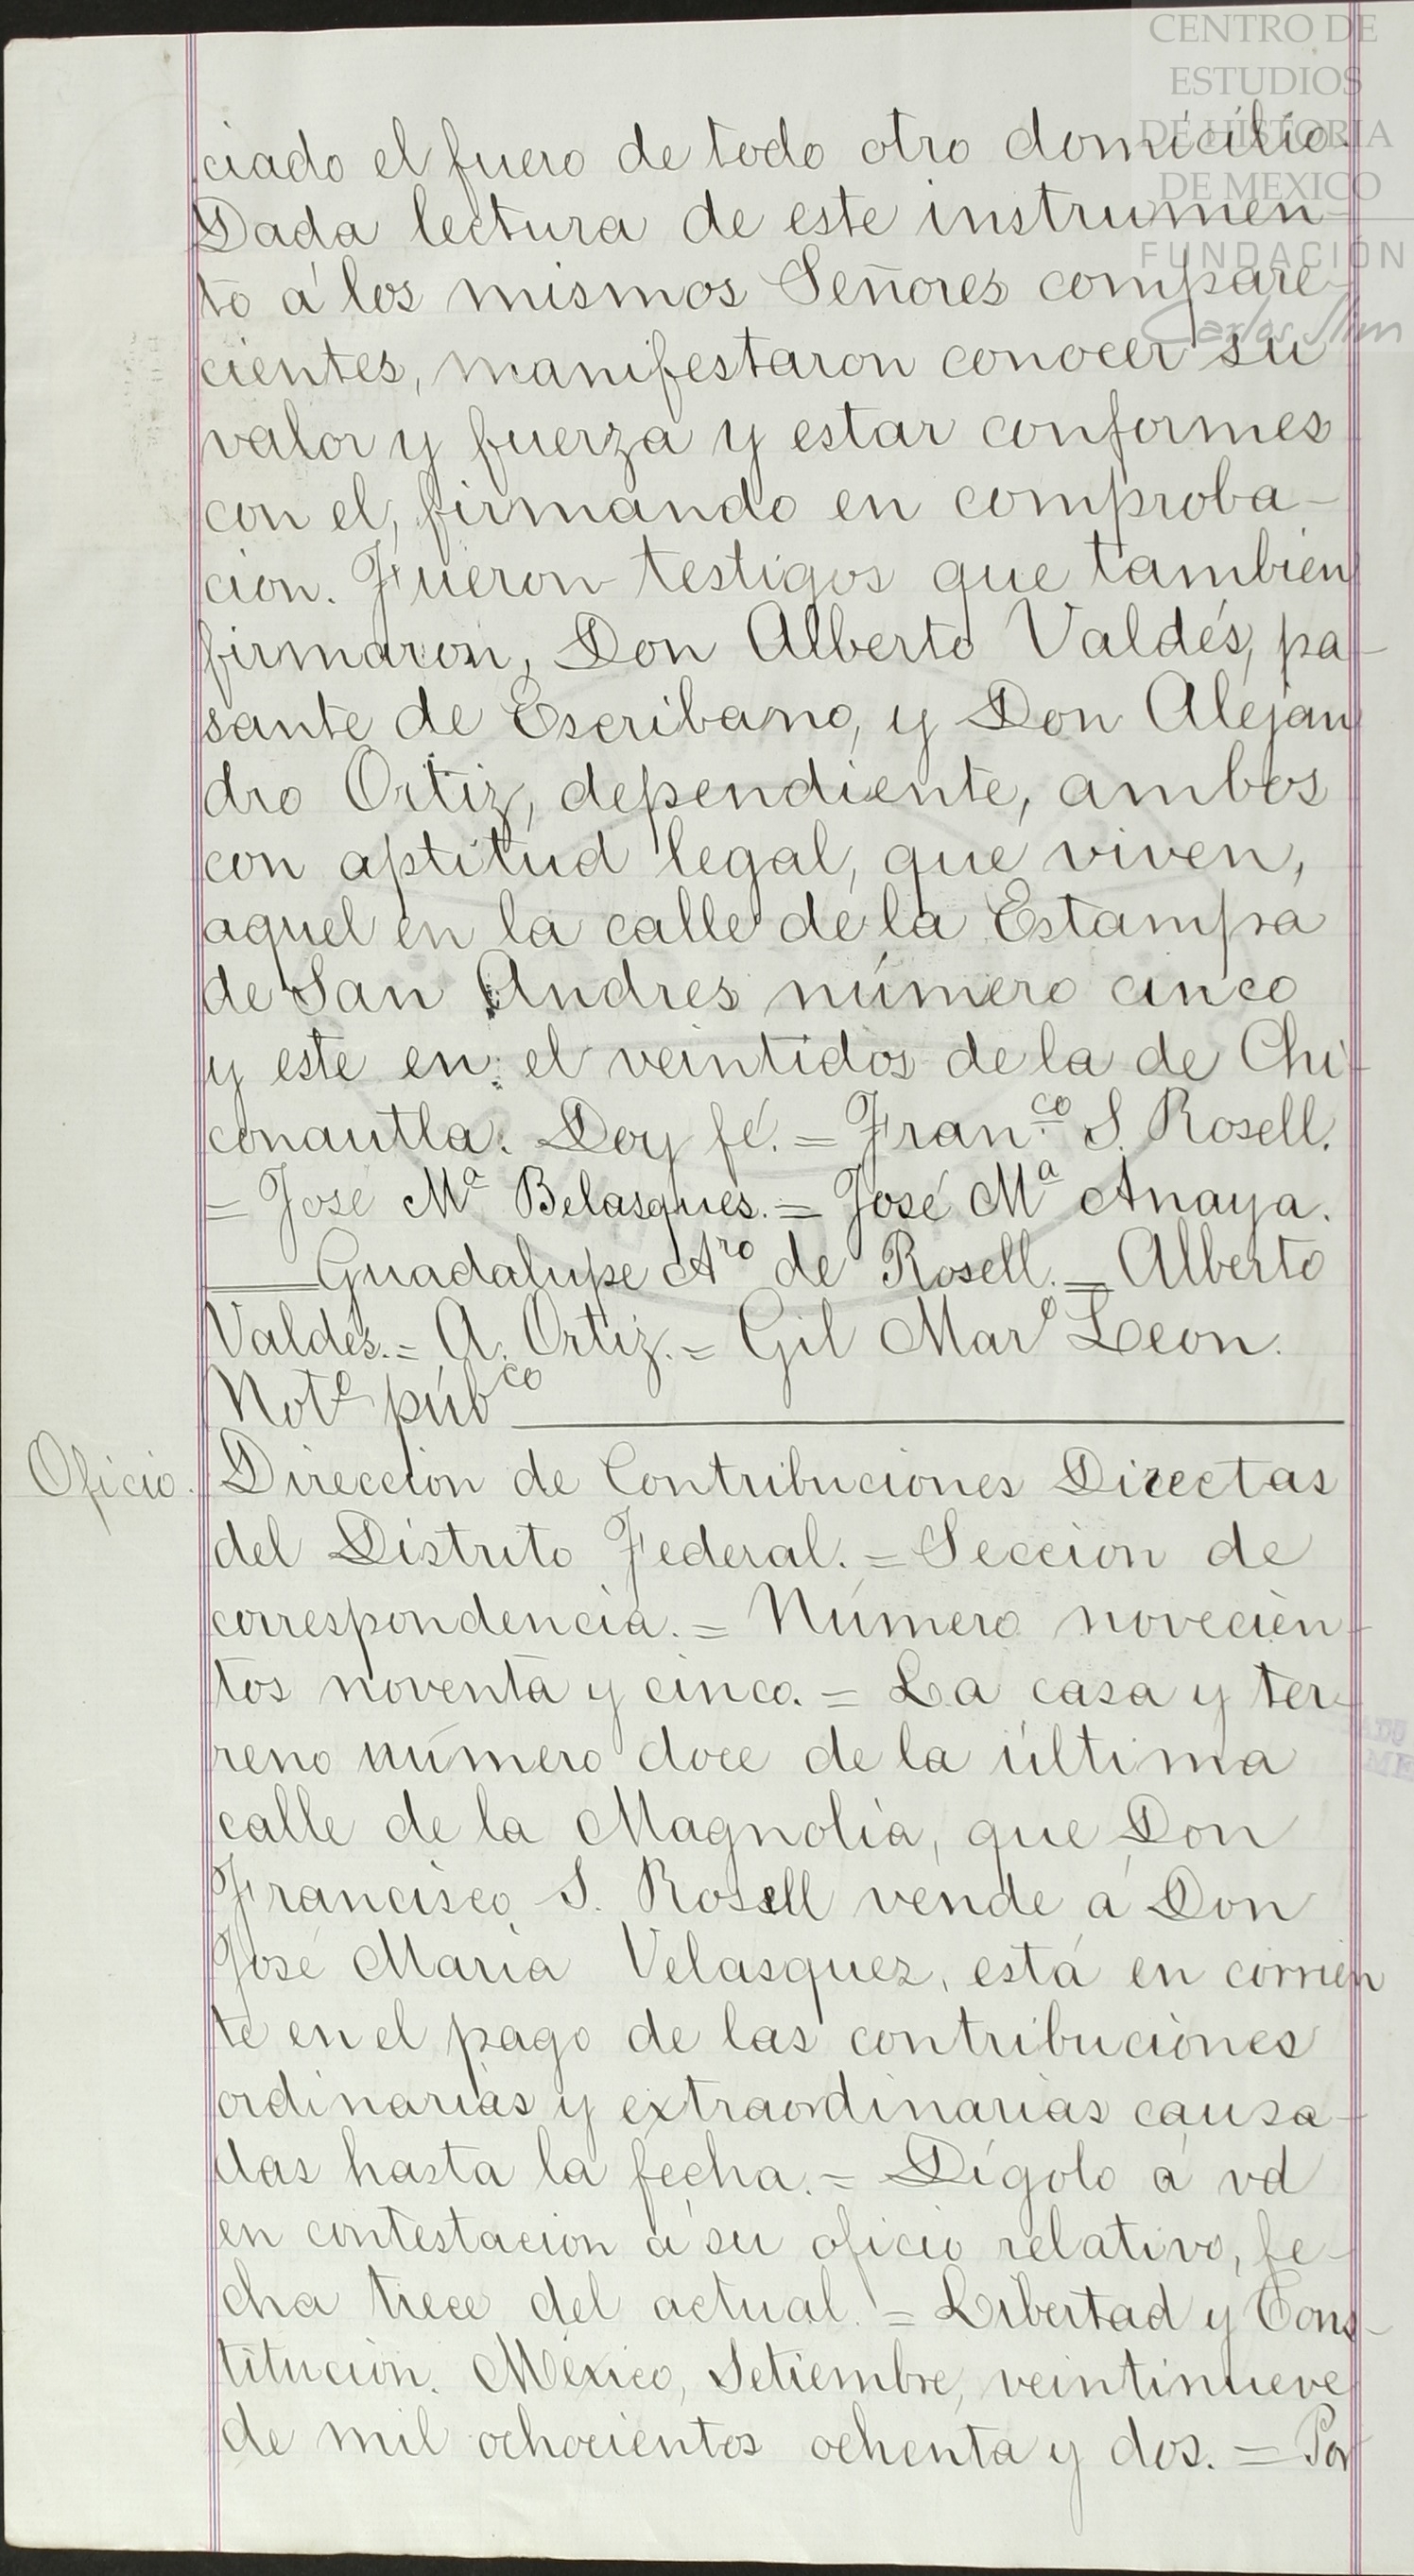 CENTRO DE
ESTUDIOS
DE HISTORIA
DE MEXICO
FUNDACIÓN
Carlos Slim
ciado el fuero de todo otro domicilio.
Dada lectura de este instrumen-
to á los mismos Señores compare-
cientes, manifestaron conocer su
valor y fuerza y estar conformes
con el, firmando en comproba-
cion. Fueron testigos que tambien
firmaron, Don Alberto Valdés, pa-
sante de Escribano, y Don Alejan
dro Ortiz, dependiente, ambos
con aptitud legal, que viven,
aquel en la calle de la Estampa
de San Andres número cinco
y este en el veintidos de la de Chi-
conautla. Doy fé. = Fran.co S. Rosell.
= José Ma Belasques. = José Ma Anaya.
= Guadalupe Aro de Rosell. = Alberto
Valdés. = A. Ortiz. = Gil Marl Leon.
Noto púbco
Oficio. Direccion de Contribuciones Directas
del Distrito Federal. = Seccion de
correspondencia. = Número novecien-
tos noventa y cinco. = La casa y ter-
reno número doce de la última
calle de la Magnolia, que Don
Francisco S. Rosell vende á Don
José Maria Velasquez, está en corrien
te en el pago de las contribuciones
ordinarias y extraordinarias causa-
das hasta la fecha. = Dígolo á vd
en contestacion á su oficio relativo, fe-
cha trece del actual. = Libertad y Cons-
titucion. México, Setiembre, veintinueve
de mil ochocientos ochenta y dos. = Por